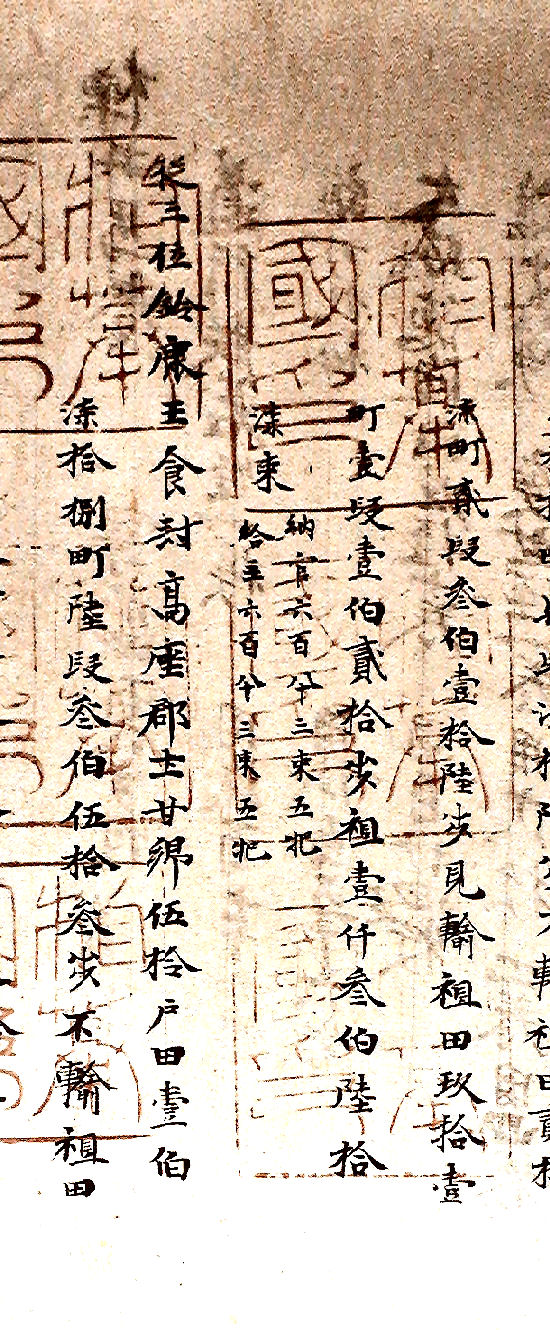 漆町貳段叁伯壹拾陸歩見輸租田玖拾壹
町壹段壹伯貳拾歩租壹仟叁伯陸拾
漆束
納官六百八十三束五把
給主六百八十三束五把
從三位鈴鹿王食封高座郡土甘郷伍拾戸田壹伯
漆拾捌町陸段叁伯伍拾叁歩不輸租田
相模國印